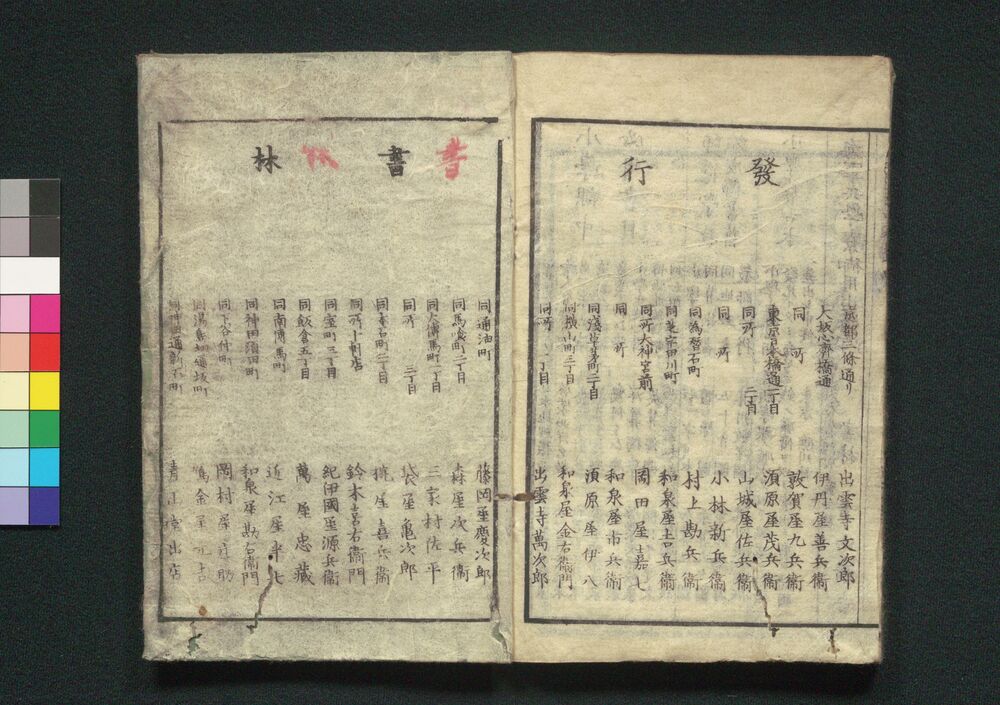 發行
京都二條通リ 出雲寺文次郎
大坂心齋橋通 伊丹屋善兵衞
同 所 敦賀屋九兵衞
東京日本橋通一丁目 須原屋茂兵衞
同所 二丁目 山城屋佐兵衞
同 所 小林新兵衞
同 為替石町 村上勘兵衞
同芝宇田川町 和泉屋吉兵衞
同所大神宮前 岡田屋嘉七
同 所 和泉屋市兵衞
同淺草茅町二丁目 須原屋伊八
同横山町三丁目 和泉屋金右衞門
同所 一丁目 出雲寺萬次郎
書林
書林
同通油町 藤岡屋慶次郎
同馬喰町二丁目 森屋次兵衞
同大傳馬町二丁目 三家村佐平
同所 三丁目 袋屋亀次郎
同本石町二丁目 椀屋喜兵衞
同所十軒店 鈴木喜右衞門
同室町三丁目 紀伊國屋源兵衞
同飯倉五丁目 萬屋忠藏
同南傳馬町 近江屋半七
同神田須田町 和泉屋勘右衞門
同下谷竹町 岡村屋庄助
同湯島切通坂町 鴈金屋
同神田通新石町 青山堂出店